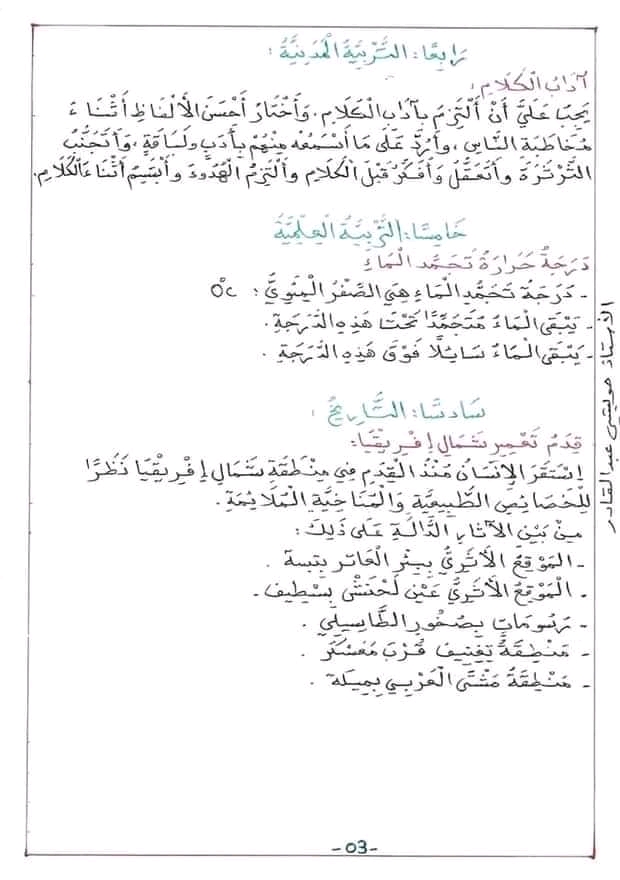 رَابِعًا: التَّرْبِيَةُ الْمَدَنِيَّةُ:
آدَابُ الْكَلَامِ:
يَجِبُ عَلَيَّ أَنْ أَلْتَزِمَ بِآدَابِ الْكَلَامِ. وَأَخْتَارُ أَحْسَنَ الْأَلْفَاظِ أَثْنَاءَ
مُخَاطَبَةِ النَّاسِ، وَأَرُدُّ عَلَى مَا أَسْمَعُهُ مِنْهُمْ بِأَدَبٍ وَلَبَاقَةٍ، وَأَتَجَنَّبُ
الثَّرْثَرَةَ وَأَتَعَقَّلُ وَأُفَكِّرُ قَبْلَ الْكَلَامِ وَأَلْتَزِمُ الْهُدُوءَ وَأَبْتَسِمُ أَثْنَاءَ الْكَلَامِ.
خَامِسًا: التَّرْبِيَةُ الْعِلْمِيَّةُ
دَرَجَةُ حَرَارَةُ تَجَمُّدِ الْمَاءِ
- دَرَجَةُ تَجَمُّدِ الْمَاءِ هِيَ الصِّفْرُ الْمِئَوِيُّ: 0°c
- يَبْقَى الْمَاءُ مُتَجَمِّدًا تَحْتَ هَذِهِ الدَّرَجَةِ.
- يَبْقَى الْمَاءُ سَائِلًا فَوْقَ هَذِهِ الدَّرَجَةِ.
سَادِسًا: التَّارِيخُ:
قِدَمُ تَعْمِيرِ شَمَالِ إِفْرِيقْيَا:
اِسْتَقَرَّ الْإِنْسَانُ مُنْذُ الْقِدَمِ فِي مِنْطَقَةِ شَمَالِ إِفْرِيقْيَا نَظَرًا
لِلْخَصَائِصِ الطَّبِيعِيَّةِ وَالْمُنَاخِيَّةِ الْمُلَائِمَةِ.
مِنْ بَيْنِ الْآثَارِ الدَّالَّةِ عَلَى ذَلِكَ:
- الْمَوْقِعُ الْأَثَرِيُّ بِبِئْرِ الْعَاتِرِ بِتِبِسة.
- الْمَوْقِعُ الْأَثَرِيُّ عَيْنِ لَحْنَشْ بِسْطِيف.
- رُسُومَاتٍ بِصُخُورِ الطَّاسِيلِي.
- مَنْطِقَةُ تِغْنِيف قُرْبَ مُعَسْكَر.
- مَنْطِقَةُ مَشْتَى الْعَرْبِي بِمِيلَة.
الأستاذ حوليشي عبد القادر
-03-